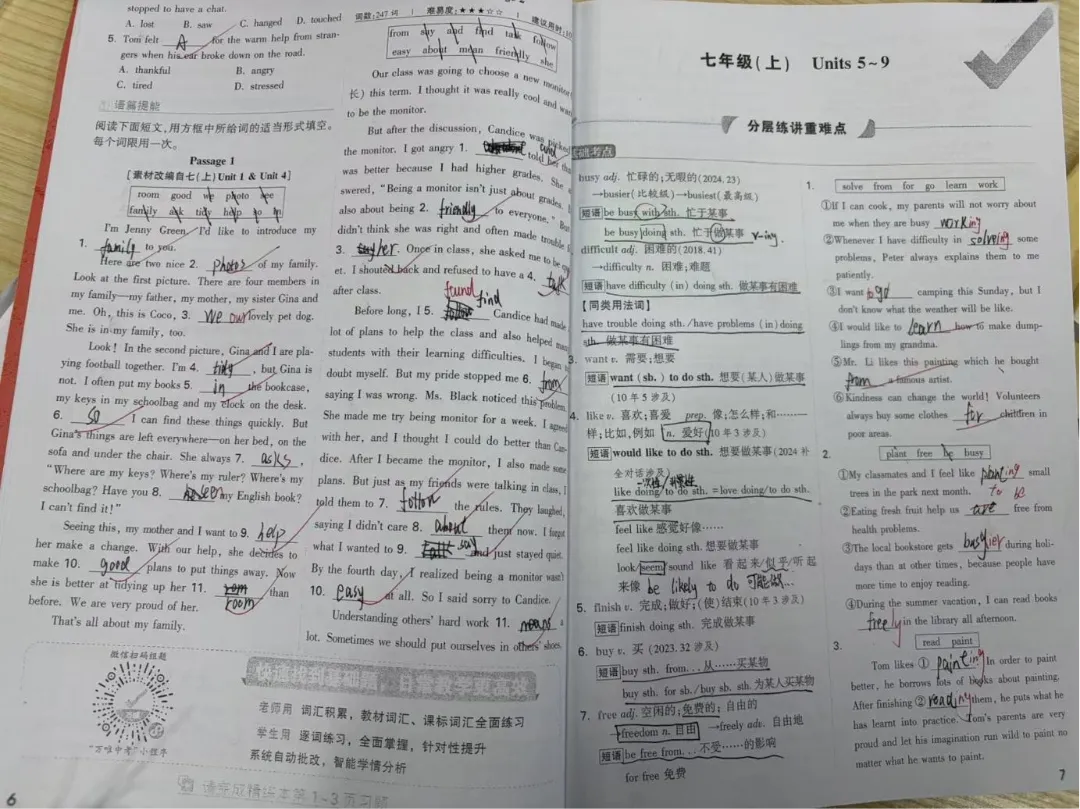 stopped to have a chat.
A. lost B. saw C. hanged D. touched
5. Tom felt A for the warm help from stran-
gers when his car broke down on the road.
A. thankful B. angry
C. tired D. stressed
语篇提能
阅读下面短文,用方框中所给词的适当形式填空。
每个词限用一次。
Passage 1
[素材改编自七(上)Unit 1 & Unit 4]
room good we photo see
family ask tidy help so in
I'm Jenny Green. I'd like to introduce my
1. family to you.
Here are two nice 2. photos of my family.
Look at the first picture. There are four members in
my family—my father, my mother, my sister Gina and
me. Oh, this is Coco, 3. our lovely pet dog.
She is in my family, too.
Look! In the second picture, Gina and I are pla-
ying football together. I'm 4. tidy, but Gina is
not. I often put my books 5. in the bookcase,
my keys in my schoolbag and my clock on the desk.
6. so I can find these things quickly. But
Gina's things are left everywhere—on her bed, on the
sofa and under the chair. She always 7. asks,
"Where are my keys? Where's my ruler? Where's my
schoolbag? Have you 8. seen my English book?
I can't find it!"
Seeing this, my mother and I want to 9. help
her make a change. With our help, she decides to
make 10. good plans to put things away. Now
she is better at tidying up her 11. room than
before. We are very proud of her.
That's all about my family.
微信扫码组题
"万唯中考"小程序
快速找到基础题,日常教学更高效
老师用 词汇积累,教材词汇、课标词汇全面练习
学生用 逐词练习,全面掌握,针对性提升
系统自动批改,智能学情分析
请完成精练本第1-3页习题
6
词数:247 词 难易度:★★★☆☆ 建议用时:10
from say and find task follow
easy about mean friendly she
Our class was going to choose a new monitor
长) this term. I thought it was really cool and
to be the monitor.
But after the discussion, Candice was picked
the monitor. I got angry 1. and told her
was better because I had higher grades. She
swered, "Being a monitor isn't just about grades.
also about being 2. friendly to everyone." But
didn't think she was right and often made trouble
3. her. Once in class, she asked me to be
et. I shouted back and refused to have a 4. talk
after class.
Before long, I 5. found find Candice had made
lot of plans to help the class and also helped many
students with their learning difficulties. I began to
doubt myself. But my pride stopped me 6. from
saying I was wrong. Ms. Black noticed this problem.
She made me try being monitor for a week. I agreed
with her, and I thought I could do better than Can-
dice. After I became the monitor, I also made some
plans. But just as my friends were talking in class, I
told them to 7. follow the rules. They laughed,
saying I didn't care 8. about them now. I forgot
what I wanted to 9. say and just stayed quiet.
By the fourth day, I realized being a monitor wasn't
10. easy at all. So I said sorry to Candice.
Understanding others' hard work 11. means a
lot. Sometimes we should put ourselves in others' shoes.
七年级(上) Units 5~9
分层练讲重难点
基准考点
busy adj. 忙碌的;无暇的(2024.23)
→busier(比较级)→busiest(最高级)
短语 be busy with sth. 忙于某事
be busy doing sth. 忙于做某事 v-ing.
difficult adj. 困难的(2018.41)
→difficulty n. 困难;难题
短语 have difficulty (in) doing sth. 做某事有困难
【同类用法词】
have trouble doing sth./have problems (in) doing
sth. 做某事有困难
3. want v. 需要;想要
短语 want (sb.) to do sth. 想要(某人)做某事
(10年5涉及)
4. like v. 喜欢;喜爱 prep. 像;怎么样;和……一
样;比如,例如 n. 爱好(10年3涉及)
短语 would like to do sth. 想要做某事(2024补
全对话涉及)
一次性/习惯性
like doing/to do sth. =love doing/to do sth.
喜欢做某事
feel like 感觉好像……
feel like doing sth. 想要做某事
look/seem/sound like 看起来/似乎/听起
来像 be likely to do 可能做…
5. finish v. 完成;做好;(使)结束(10年3涉及)
短语 finish doing sth. 完成做某事
6. buy v. 买(2023.32涉及)
短语 buy sth. from... 从……买某物
buy sth. for sb./buy sb. sth. 为某人买某物
7. free adj. 空闲的;免费的;自由的
→freedom n. 自由 →freely adv. 自由地
短语 be free from... 不受……的影响
for free 免费
1. solve from for go learn work
①If I can cook, my parents will not worry about
me when they are busy working
②Whenever I have difficulty in solving some
problems, Peter always explains them to me
patiently.
③I want to go camping this Sunday, but I
don't know what the weather will be like.
④I would like to learn how to make dump-
lings from my grandma.
⑤Mr. Li likes this painting which he bought
from a famous artist.
⑥Kindness can change the world! Volunteers
always buy some clothes for children in
poor areas.
2. plant free be busy
①My classmates and I feel like planting small
trees in the park next month.
②Eating fresh fruit help us are to be free from
health problems.
③The local bookstore gets busyier during holi-
days than at other times, because people have
more time to enjoy reading.
④During the summer vacation, I can read books
freely in the library all afternoon.
3. read paint
Tom likes ① painting In order to paint
better, he borrows lots of books about painting.
After finishing ② reading them, he puts what he
has learnt into practice. Tom's parents are very
proud and let his imagination run wild to paint no
matter what he wants to paint.
7